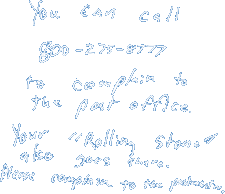 You can call
800-275-8777
to complain to
the post office.
Your "Rolling Stone"
also goes there.
Have complain to the